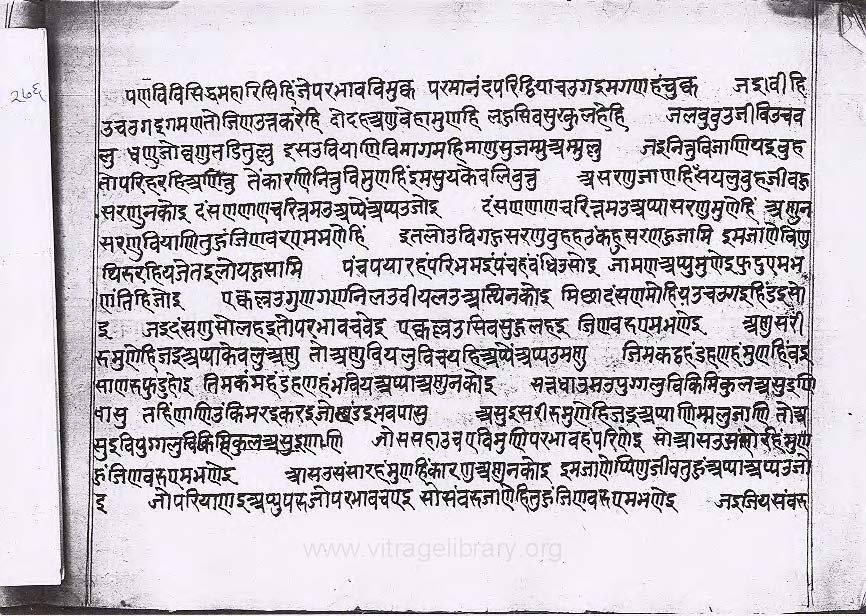 २७६
पणविविसिद्धमहारिसिहिंजेपरभावविमुक्क परमानंदपरिट्ठियाचउगइगमणहंचुक्क जइवीहि
उचउगइगमणतोजिणउत्तकरेहि दोदहअणुवेहामुणहि लहुसिवसुरकुलहेहि जलबुवुउजीविउचव
लु धणुजोव्वणुतडितुल्लु इसउवियाणिविमागमहिमाणुसुजम्मुअमुल्लु जइनिच्चुविजाणियइवुह
तोपरिहरहिअणिच्चु तेकारणिनिच्चुविमुणहिंइमसुयकेवलिवुत्तु असरणुजाणहिंसयलुवुहजीवहु
सरणुनकोइ दंसणणाणचरित्तमउअप्पेअप्पउजोइ दंसणणाणचरित्तमउअप्पासरणुमुणेहिं अणुन
सरणुवियाणितुहुंजिणवरएमभणेहिं इतलोउविगहुसरणुवुहहउंकहुसरणहुजामि इमजाणेविणु
थिरुरहियजेतइलोयहुसामि पंचपयारहंपरिभमइंपंचहवंधिउसोइ जामणअप्पुमुणेइफुडुएमभ
णंतिहिजोइ एक्कल्लउगुणगणनिलउवीयलउअत्थिनकोइ मिछादंसणमोहियउचउगइहिंडइसो
इ जइदंसणुसोलहइतोपरभावचवेइ एक्कल्लउसिवसुहुलहइ जिणवरुएमभणेइ अणुसरी
रुमुणेहिजइअप्पाकेवलुअणु तोअणुवियलुविचयहिअप्पेअप्पउमणु जिमकट्ठहडहणहंमुणहिंवइ
साणरुफुडुहोइ तिमकंमहंडहणहंभवियअप्पाअणुनकोइ सत्तधाउमउपुग्गलुविकिमिकुलअसुइणि
वासु तहिंणाणिउंकिमरइकरइजोखंडइभवपासु असुइसरीरुमुणेहिजइअप्पाणिम्मलुजाणि तोअ
सुइविपुग्गलुविकिमिकुलअसुइणाणि जोससहाउचएविमुणिपरभावहंपरिणेइ सोआसउजाणेहिंमुण
हंजिणवरुएमभणेइ आसउसंसारहंमुणहिंकारणअणुनकोइ इमजाणेप्पिणुजीवतुहुंअप्पाअप्पउजो
इ जोपरियाणइअप्पुपरुजोपरभावचएइ सोसंवरुजाणेहितुहुंजिणवरुएमभणेइ जइजियसंवरु
www.vitragelibrary.org